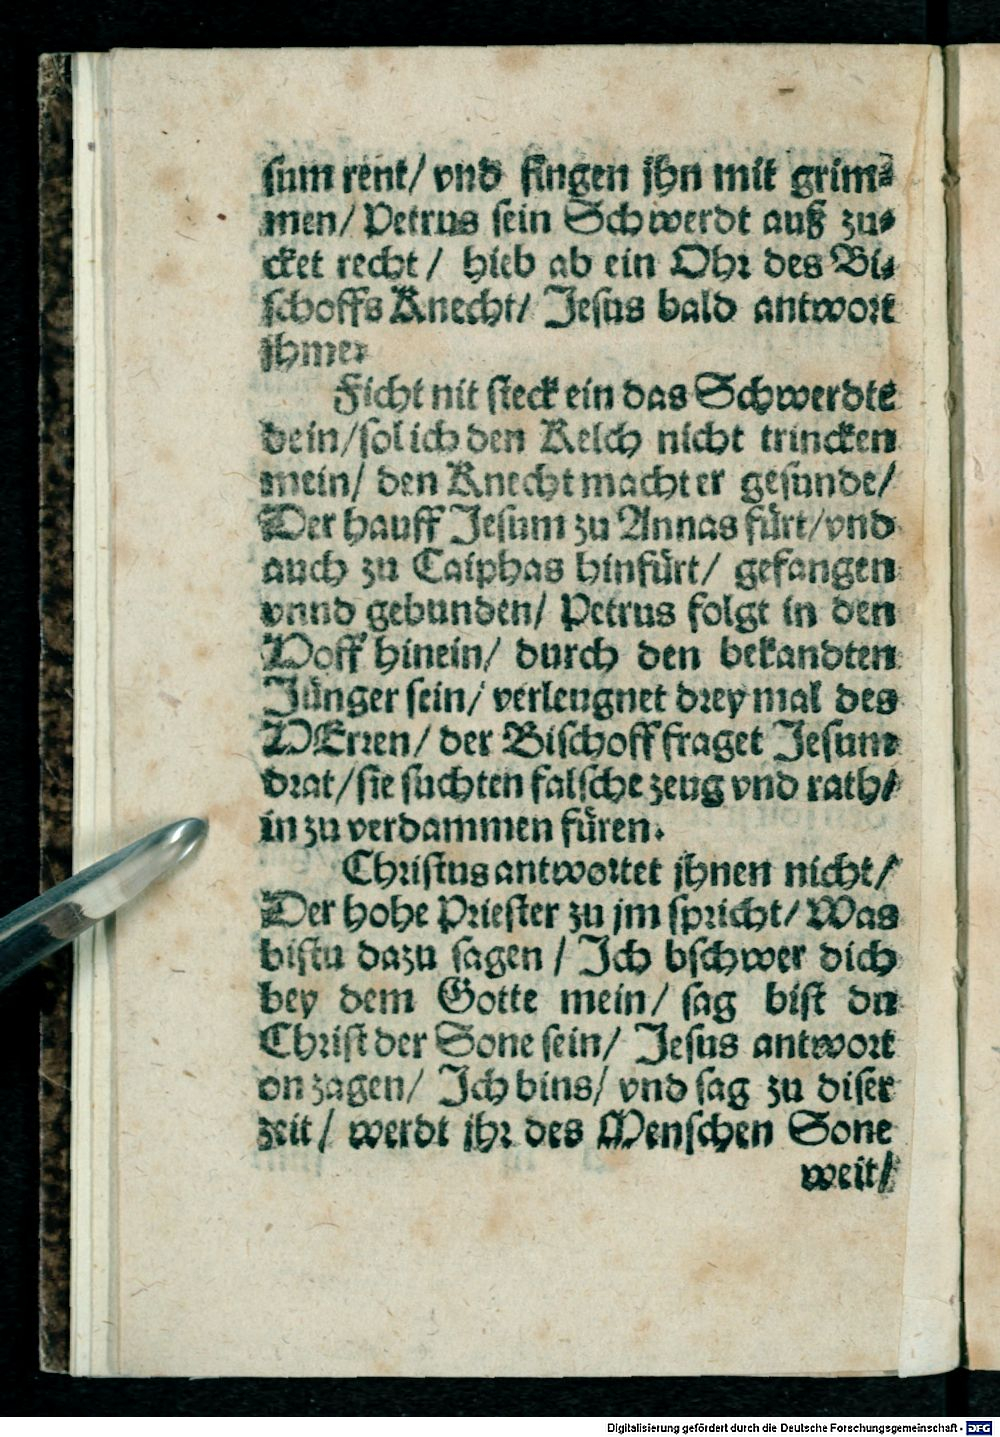 sum rent/ vnd fingen jhn mit grim⸗
men/ Petrus sein Schwerdt auß zu⸗
cket recht/ hieb ab ein Ohr des Bi⸗
schoffs Knecht/ Jesus bald antwort
jhme.
Ficht nit steck ein das Schwerdte
dein/ sol ich den Kelch nicht trincken
mein/ den Knecht macht er gesunde/
Der hauff Jesum zu Annas fürt/ vnd
auch zu Caiphas hinfürt/ gefangen
vnnd gebunden/ Petrus folgt in den
Hoff hinein/ durch den bekandten
Jünger sein/ verleugnet drey mal des
HErren/ der Bischoff fraget Jesum
drat/ sie suchten falsche zeug vnd rath/
in zu verdammen füren.
Christus antwortet jhnen nicht/
Der hohe Priester zu jm spricht/ Was
bistu dazu sagen/ Ich bschwer dich
bey dem Gotte mein/ sag bist du
Christ der Sone sein/ Jesus antwort
on zagen/ Ich bins/ vnd sag zu diser
zeit/ werdt jhr des Menschen Sone
weit/
Digitalisierung gefördert durch die Deutsche Forschungsgemeinschaft - DFG